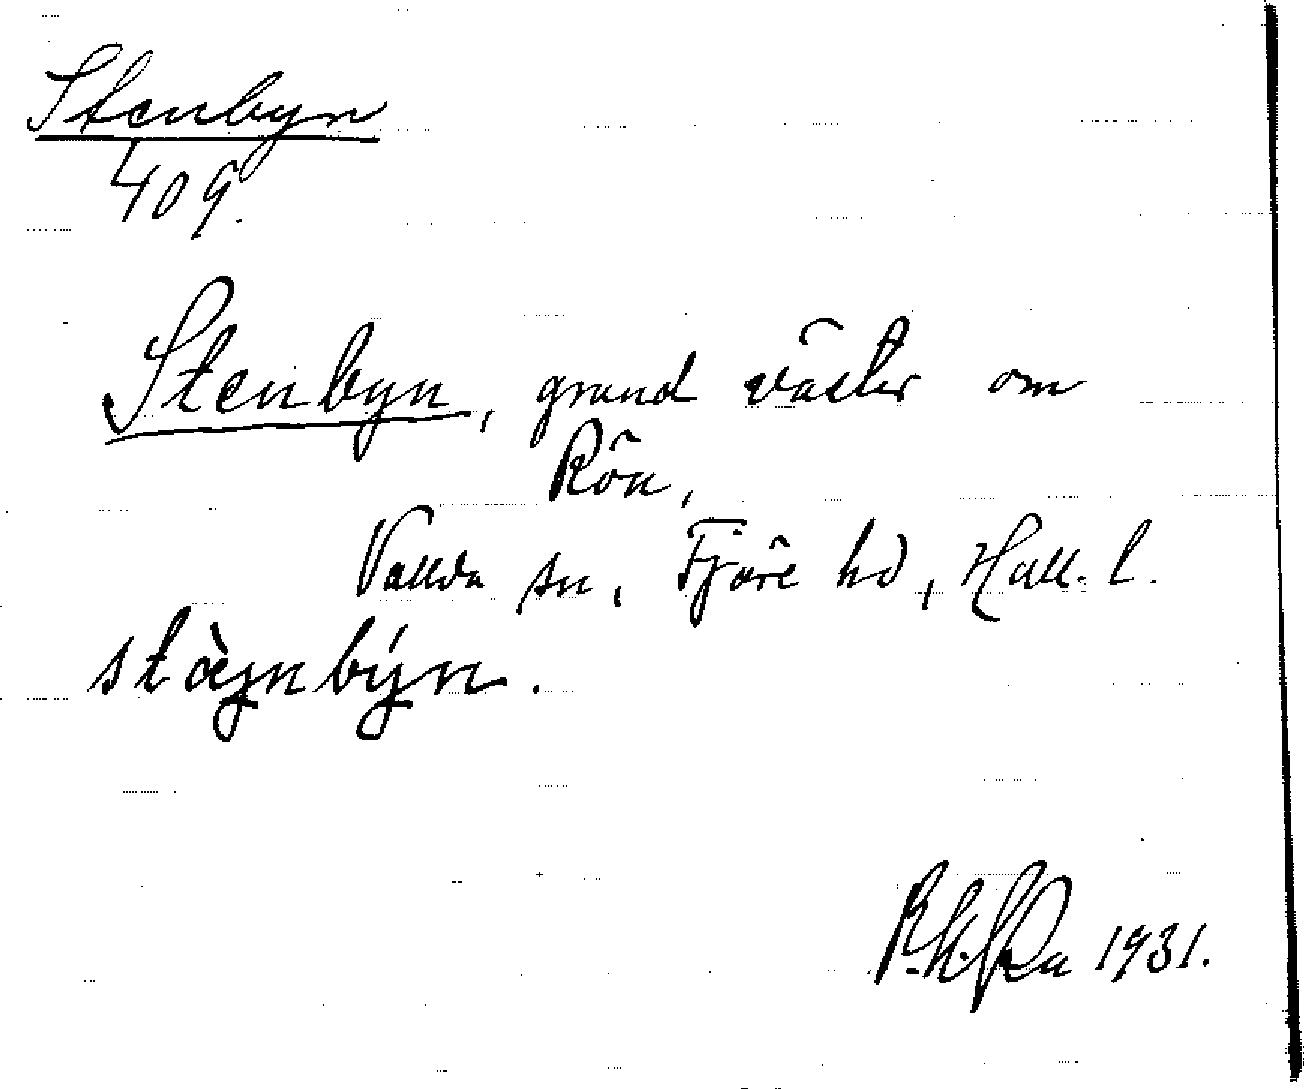 Stenbyn
409.
Stenbyn, grund väster om
Rön,
Vallda sn, Fjäre hd, Hall. l.
stæ̀ynbýn.
1931.